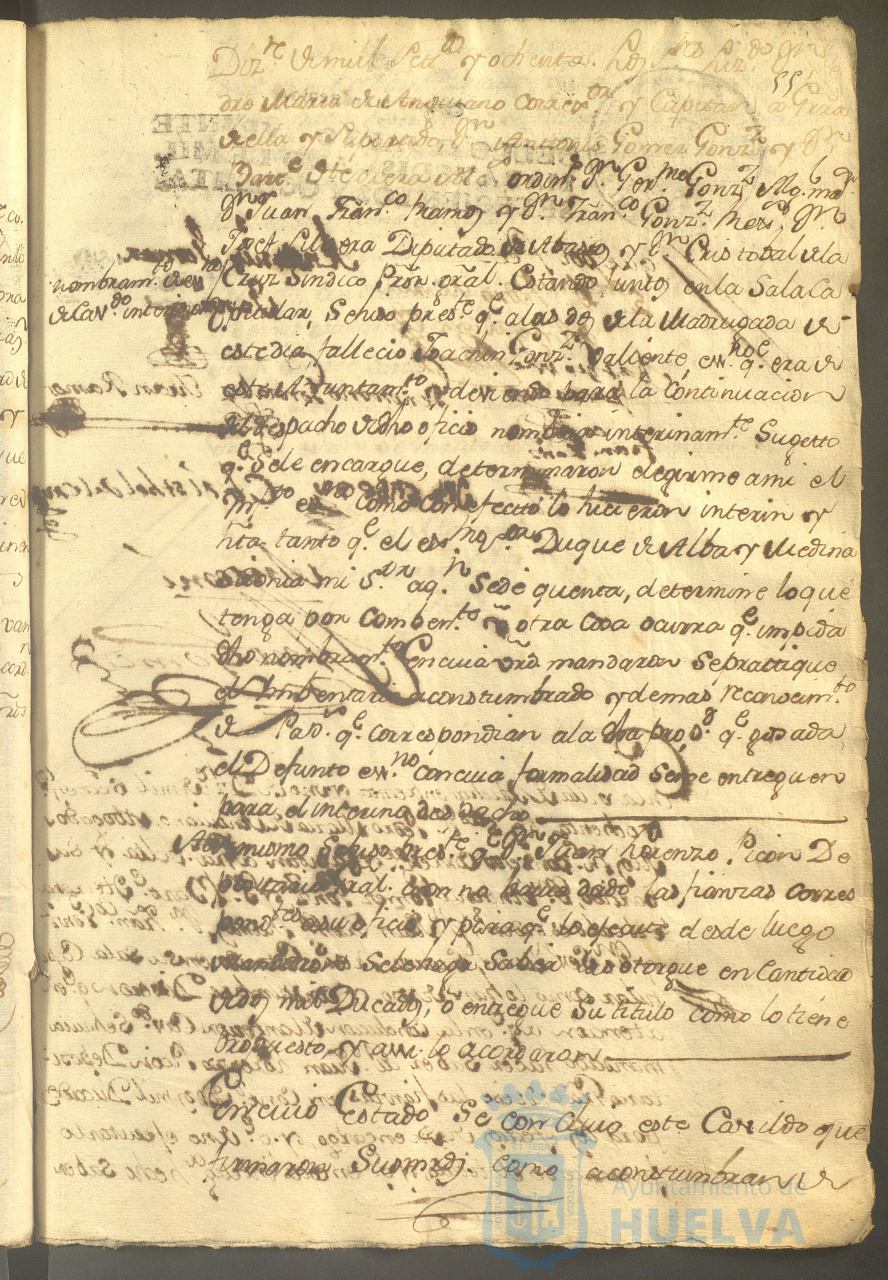 55
Diz.re de mill Setec.os y ochenta. los
dro Maria de Anguiano Correx.or y Capitan a Grra
de ella y su partido, D.n Antonio Gomez Gonz.z y D.n
Bar.e de Cordin.s D.n Ger.mo Gonz.z
D.n Juan Fran.co Ramos y D.n Fran.co Gonz.z D.n
Josef Diputado de Abasto y D.n Cristobal de la
nombram.to de es.no
de Cav.do interino
Cruz Sindico Pror. gral. Estando juntos en la Sala Ca
pitular, Se hiso pres.te q.e a las dos de la Madrugada de
este dia, fallecio Joachin Gonz.z Valiente, ess.no q.e era de
este Ayuntam.to y deviendo para la Continuacion
del despacho de dho oficio nombrar interinam.te Sugetto
q.e Se le encargue, determinaron elegirme a mi el
Pres.to es.no como con efecto lo hicieron interin y
hta. tanto q.e el ex.mo s.or Duque de Alba y Medina
Sidonia mi S.or a q.n Se dé quenta, determine lo que
tenga por combem.te ú otra cosa ocurra q.e impida
dho nombram.to En cuia mandaron Se prattique
el Imbentario acostumbrado y demas reconocim.to
de Pap.s q.e correspondian a la q.e gosada
el Defunto es.no con cuia formalidad Se me entreguen
para el interino despacho
Asimismo Se hiso pres.te q.e D.n Juan Lorenzo Picon De
positario Gral. aun no havia dado las fianzas corres
pond.tes a su oficio y para q.e lo ejecute desde luego
mandaron Se le haga Saber las otorgue en Cantidad
de dos mil Ducados, o entregue Su titulo como lo tiene
propuesto y assi lo acordaron
En cuio Estado Se concluió este Cavildo que
firmaron Sus mrds. como acostumbran de
Ayuntamiento de
HUELVA